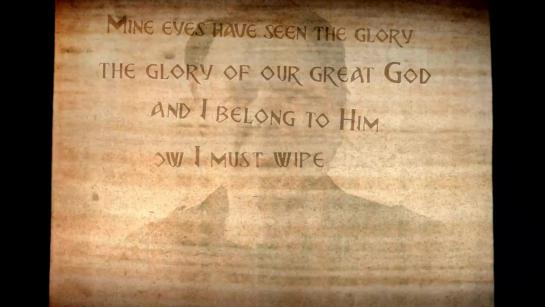 Mine eyes have seen the glory
the glory of our great God
and I belong to Him
ow I must wipe